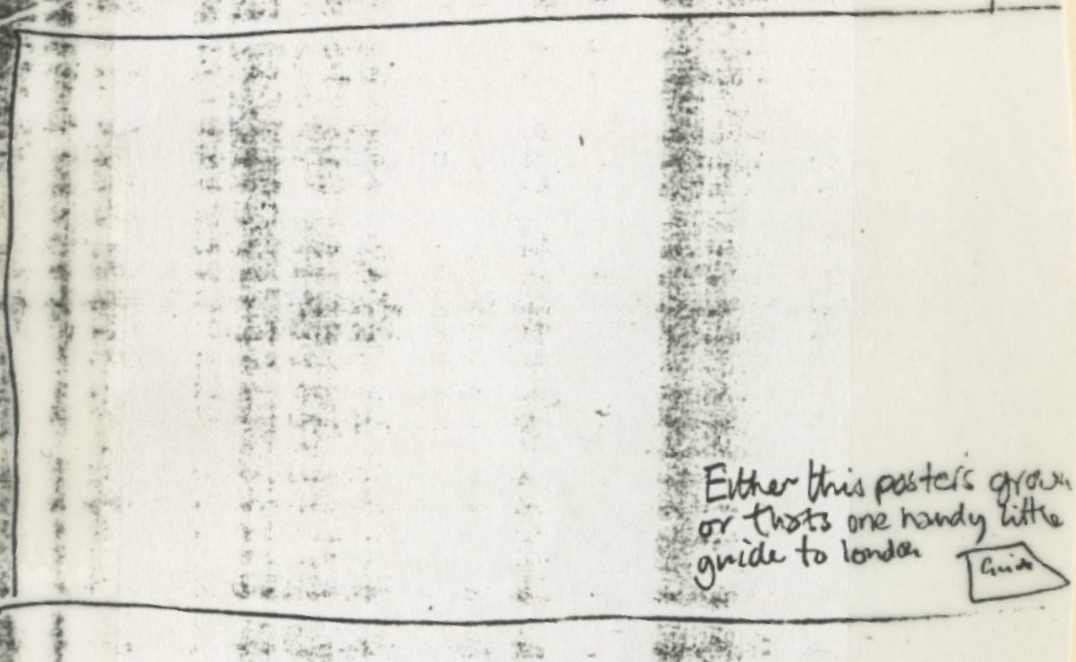 Either this poster's grown
or thats one handy little
guide to london
Guide